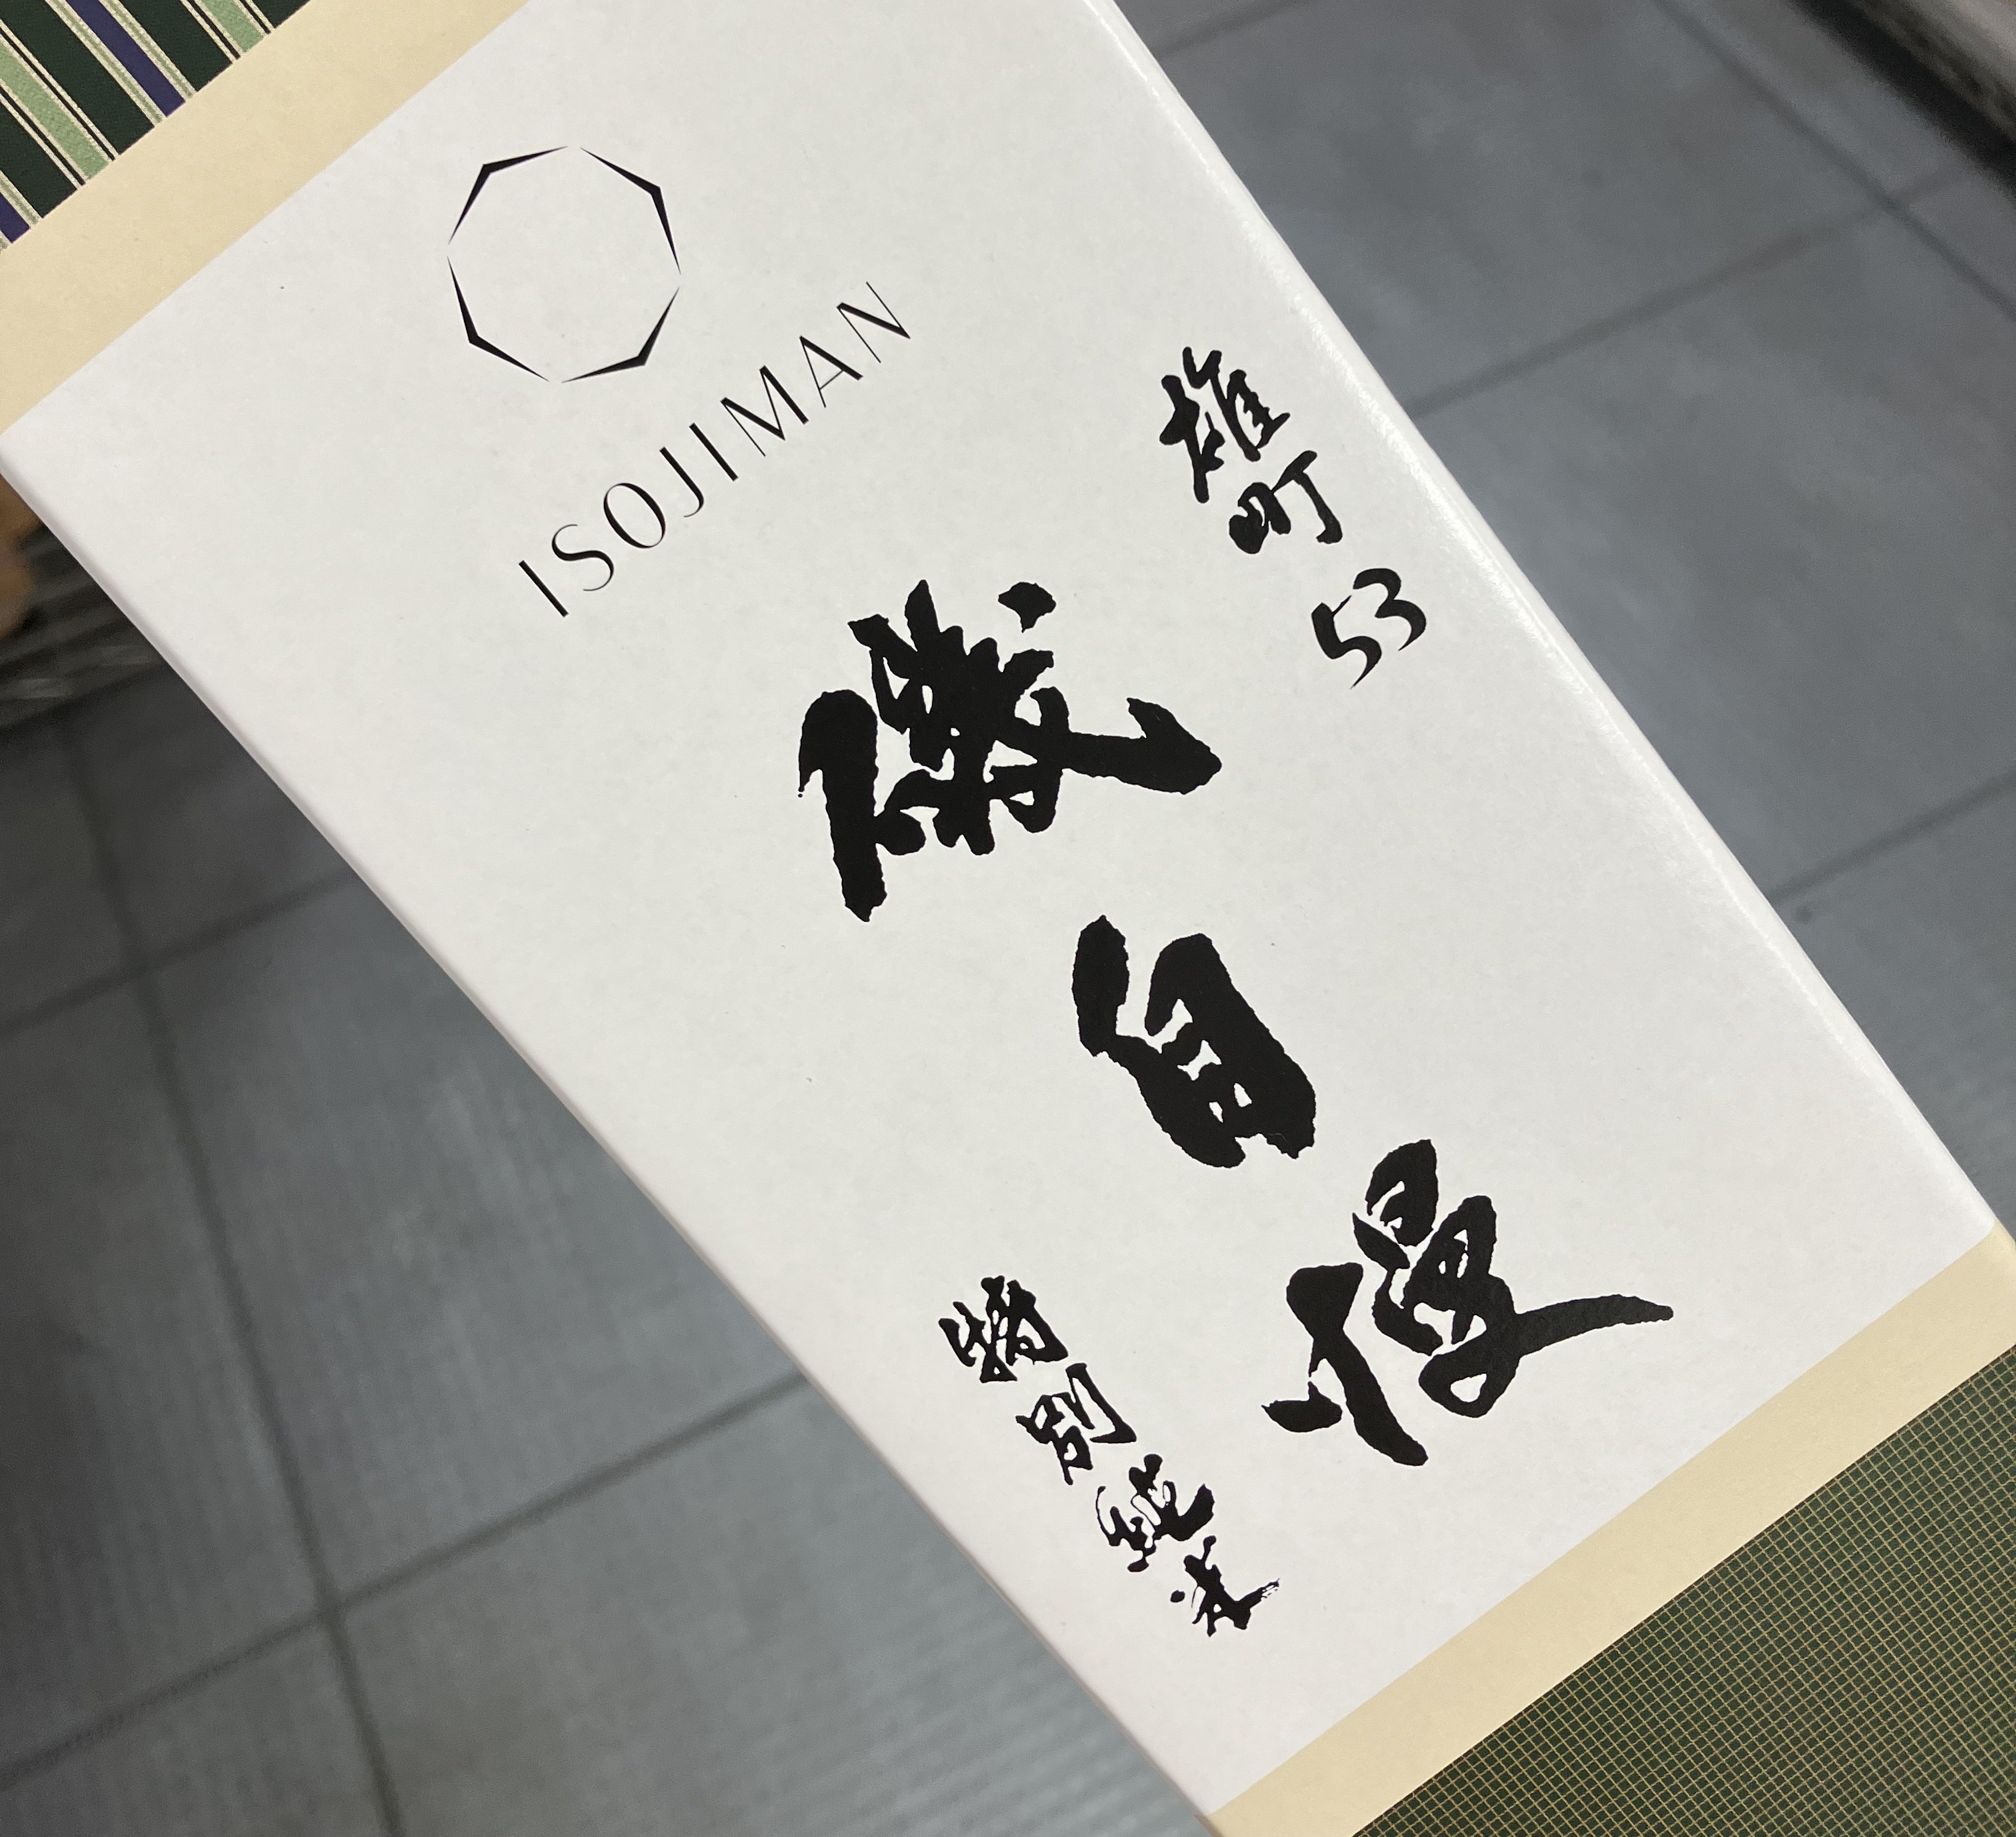 ISOJIMAN
雄町53
磯自慢
特別純米